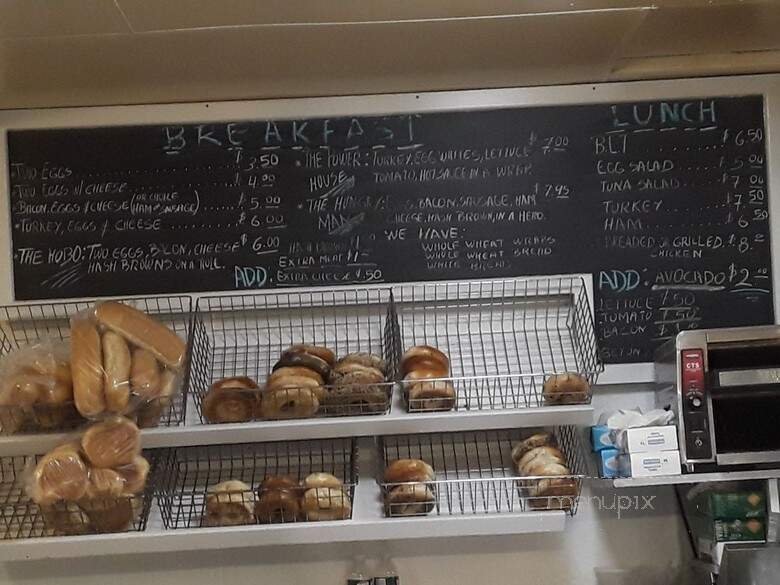 BREAKFAST
TWO EGGS $3.50
TWO EGGS W/CHEESE $4.00
BACON, EGGS & CHEESE (OR CHOICE HAM & SAUSAGE) $5.00
TURKEY, EGGS & CHEESE $6.00
THE HOBO: TWO EGGS, BACON, CHEESE $6.00
HASH BROWNS ON A ROLL.
THE POWER: TURKEY, EGG WHITES, LETTUCE $7.00
HOUSE TOMATO, HOT SAUCE IN A WRAP.
THE HUNGRY: EGGS, BACON, SAUSAGE, HAM $7.95
MAN CHEESE, HASH BROWN, IN A HERO.
WE HAVE:
WHOLE WHEAT WRAPS
WHOLE WHEAT BREAD
WHITE BREAD
ADD:
EXTRA MEAT $1
EXTRA CHEESE $.50
LUNCH
BLT $6.50
EGG SALAD $5.00
TUNA SALAD $7.00
TURKEY $7.50
HAM $6.50
BREADED OR GRILLED $8.
CHICKEN
ADD: AVOCADO $2.00
LETTUCE $.50
TOMATO $.50
BACON
CTS
menupix